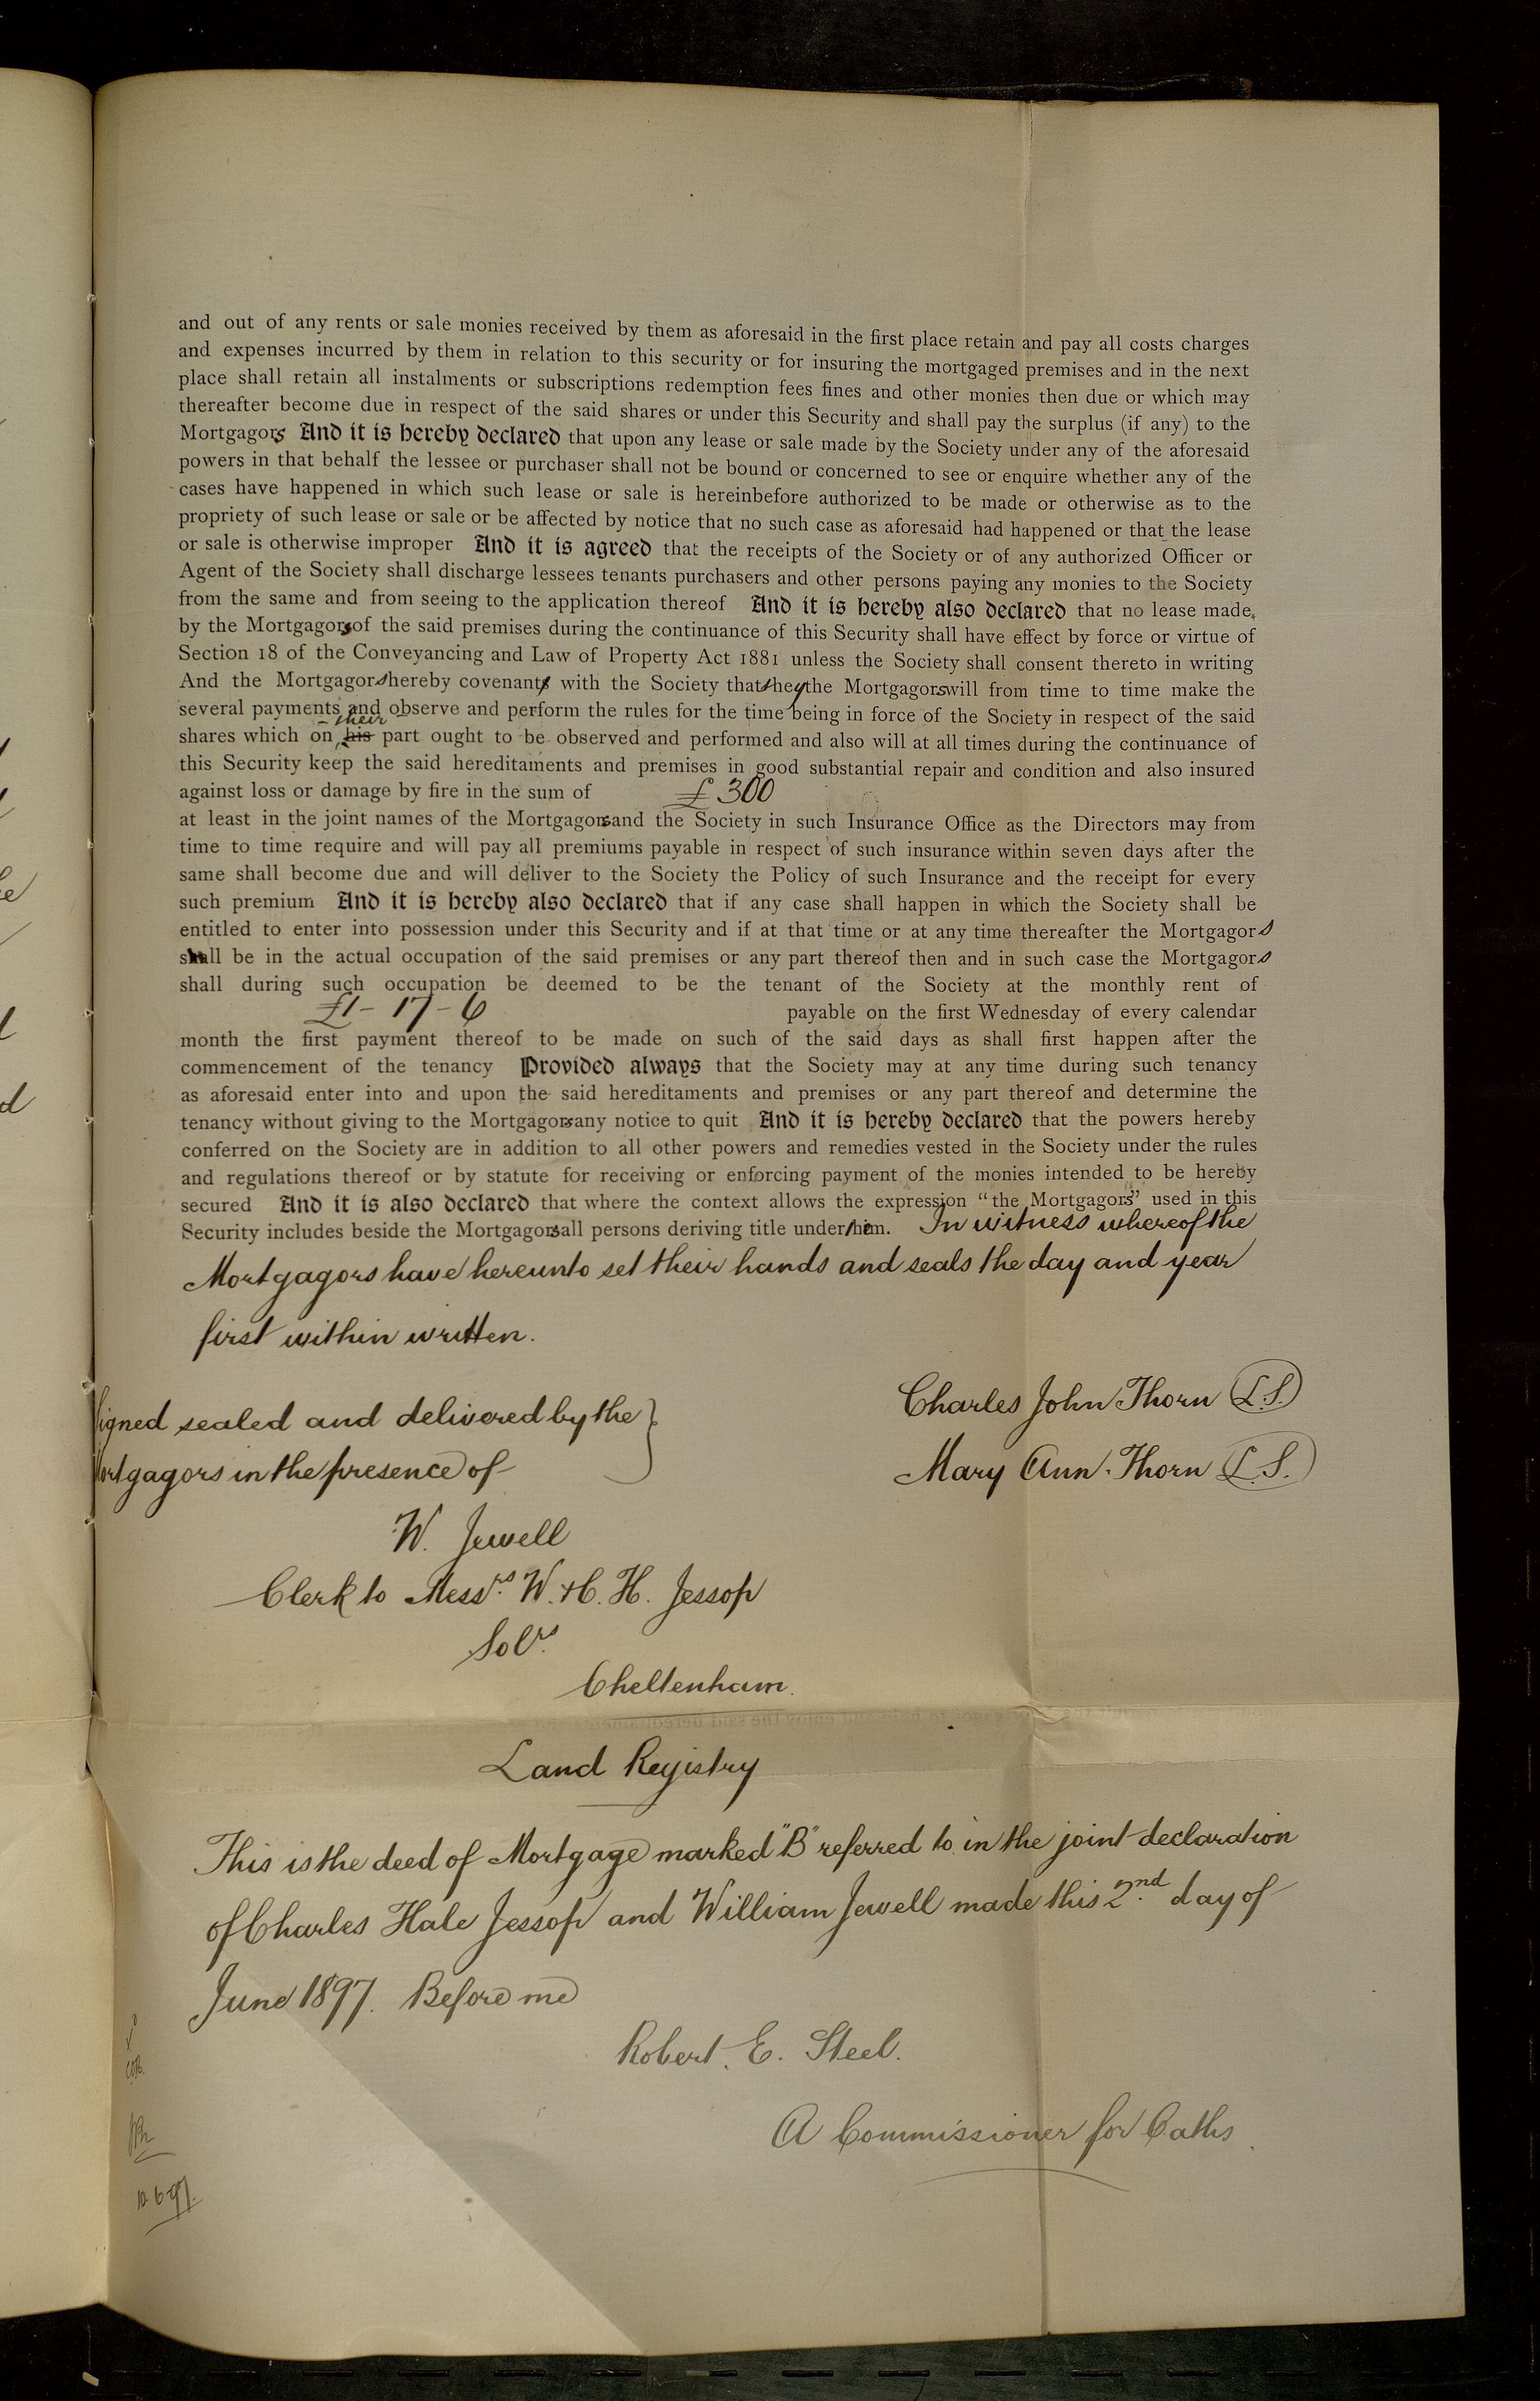 and out of any rents or sale monies received by them as aforesaid in the first place retain and pay all costs charges
and expenses incurred by them in relation to this security or for insuring the mortgaged premises and in the next
place shall retain all instalments or subscriptions redemption fees fines and other monies then due or which may
thereafter become due in respect of the said shares or under this Security and shall pay the surplus (if any) to the
Mortgagors And it is hereby declared that upon any lease or sale made by the Society under any of the aforesaid
powers in that behalf the lessee or purchaser shall not be bound or concerned to see or enquire whether any of the
cases have happened in which such lease or sale is hereinbefore authorized to be made or otherwise as to the
propriety of such lease or sale or be affected by notice that no such case as aforesaid had happened or that the lease
or sale is otherwise improper And it is agreed that the receipts of the Society or of any authorized Officer or
Agent of the Society shall discharge lessees tenants purchasers and other persons paying any monies to the Society
from the same and from seeing to the application thereof And it is hereby also declared that no lease made,
by the Mortgagors of the said premises during the continuance of this Security shall have effect by force or virtue of
Section 18 of the Conveyancing and Law of Property Act 1881 unless the Society shall consent thereto in writing
And the Mortgagors hereby covenant with the Society that they the Mortgagors will from time to time make the
several payments and observe and perform the rules for the time being in force of the Society in respect of the said
their
shares which on his part ought to be observed and performed and also will at all times during the continuance of
this Security keep the said hereditaments and premises in good substantial repair and condition and also insured
against loss or damage by fire in the sum of £300
at least in the joint names of the Mortgagors and the Society in such Insurance Office as the Directors may from
time to time require and will pay all premiums payable in respect of such insurance within seven days after the
same shall become due and will deliver to the Society the Policy of such Insurance and the receipt for every
such premium And it is hereby also declared that if any case shall happen in which the Society shall be
entitled to enter into possession under this Security and if at that time or at any time thereafter the Mortgagors
shall be in the actual occupation of the said premises or any part thereof then and in such case the Mortgagors
shall during such occupation be deemed to be the tenant of the Society at the monthly rent of
£1-17-6 payable on the first Wednesday of every calendar
month the first payment thereof to be made on such of the said days as shall first happen after the
commencement of the tenancy Provided always that the Society may at any time during such tenancy
as aforesaid enter into and upon the said hereditaments and premises or any part thereof and determine the
tenancy without giving to the Mortgagors any notice to quit And it is hereby declared that the powers hereby
conferred on the Society are in addition to all other powers and remedies vested in the Society under the rules
and regulations thereof or by statute for receiving or enforcing payment of the monies intended to be hereby
secured And it is also declared that where the context allows the expression "the Mortgagors" used in this
Security includes beside the Mortgagors all persons deriving title under them. In witness whereof the
Mortgagors have hereunto set their hands and seals the day and year
first within written.
Signed sealed and delivered by the
Mortgagors in the presence of
Charles John Thorn L.S.
Mary Ann Thorn L.S.
W. Jewell
Clerk to Messrs. W. & C. H. Jessop
Solrs.
Cheltenham.
Land Registry
This is the deed of Mortgage marked "B" referred to in the joint declaration
of Charles Hale Jessop and William Jewell made this 2nd day of
June 1897. Before me
Robert. E. Steel.
A Commissioner for Oaths
10.6.97.